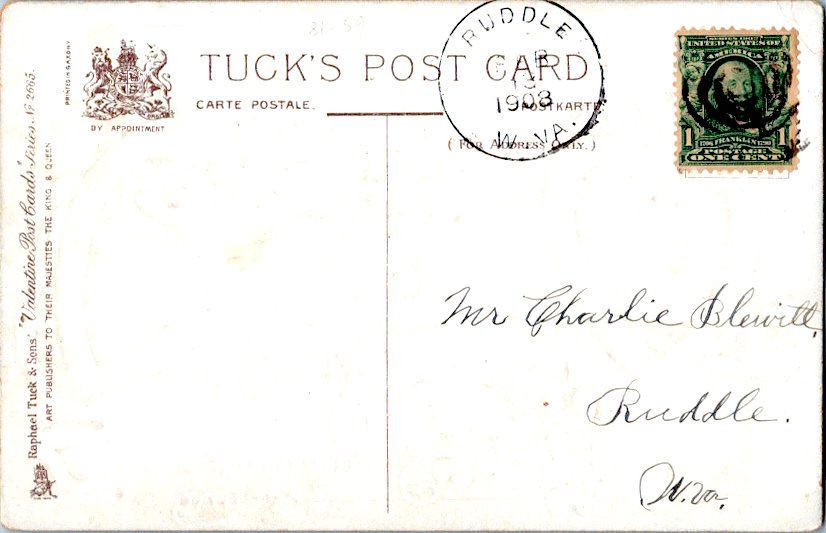 81-59
PRINTED IN SAXONY
BY APPOINTMENT
TUCK'S POST CARD
CARTE POSTALE.
POSTKARTE
( FOR ADDRESS ONLY. )
RUDDLE
1908
W. VA.
SERIES 1902
UNITED STATES OF
1 1
1706 FRANKLIN 1790
POSTAGE
ONE CENT
Raphael Tuck & Sons' "Valentine Post Cards" Series No 2665.
ART PUBLISHERS TO THEIR MAJESTIES THE KING & QUEEN
Mr Charlie Blewitt,
Ruddle.
W. Va.